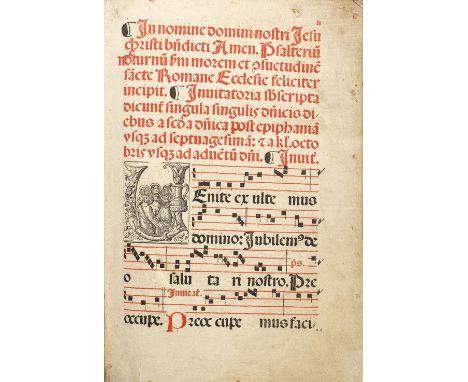 ¶ In nomine domini nostri Jesu
christi bñdicti Amen. Psalteriũ
noturnũ ẜm morem et ↄsuetudinẽ
sãcte Romane Ecclesie feliciter
incipit. ¶ Inuitatoria sb̃scripta
dicunt̃ singula singulis dñicis di
ebus a scða dñica post epiphaniã
vsqꝫ ad septuagesimã: ⁊ a kł. octo
bris vsqꝫ ad aduẽtũ dñi. ¶ Inuit̃.
VEnite ex ulte mus
domino: Jubilemꝰ de
ps.
o salu ta ri nostro. Pre
Inuitat̃.
occupe. Preoc cupe mus faci